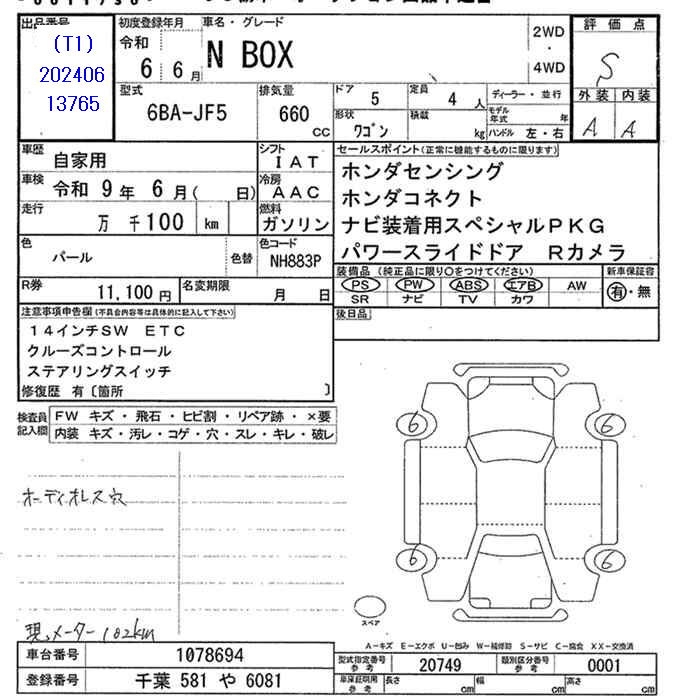 出品番号
(T1)
202406
13765
初度登録年月
令和
6 6月
車名・グレード
N BOX
2WD
・
4WD
評価点
S
外装 内装
A A
型式
6BA-JF5
排気量
660
cc
ドア
5
定員
4 人
形状
ワゴン
積載
kg
ディーラー・並行
モデル年式 年
ハンドル 左・右
車歴
自家用
シフト
IAT
車検
令和 9年 6月( 日)
冷房
AAC
走行
万 千100 km
燃料
ガソリン
色
パール
色替
色コード
NH883P
R券
11,100円
名変期限
月 日
セールスポイント(正常に機能するものに限ります)
ホンダセンシング
ホンダコネクト
ナビ装着用スペシャルPKG
パワースライドドア Rカメラ
装備品(純正品に限り〇をつけてください)
PS PW ABS エアB AW
SR ナビ TV カワ
新車保証書
有・無
後日品
注意事項申告欄(不具合内容等は具体的に記入して下さい)
14インチSW ETC
クルーズコントロール
ステアリングスイッチ
修復歴 有〔箇所 〕
検査員
記入欄
FW キズ・飛石・ヒビ割・リペア跡・×要
内装 キズ・汚レ・コゲ・穴・スレ・キレ・破レ
オーディオレス穴
6 6
6 6
スペア
現メーター102km
A-キズ E-エクボ U-凹み W-補修跡 S-サビ C-腐食 XX-交換済
車台番号
1078694
登録番号
千葉 581 や 6081
型式指定番号
参考
20749
類別区分番号
参考
0001
車庫証明用
参考
長さ cm
幅 cm
高さ cm